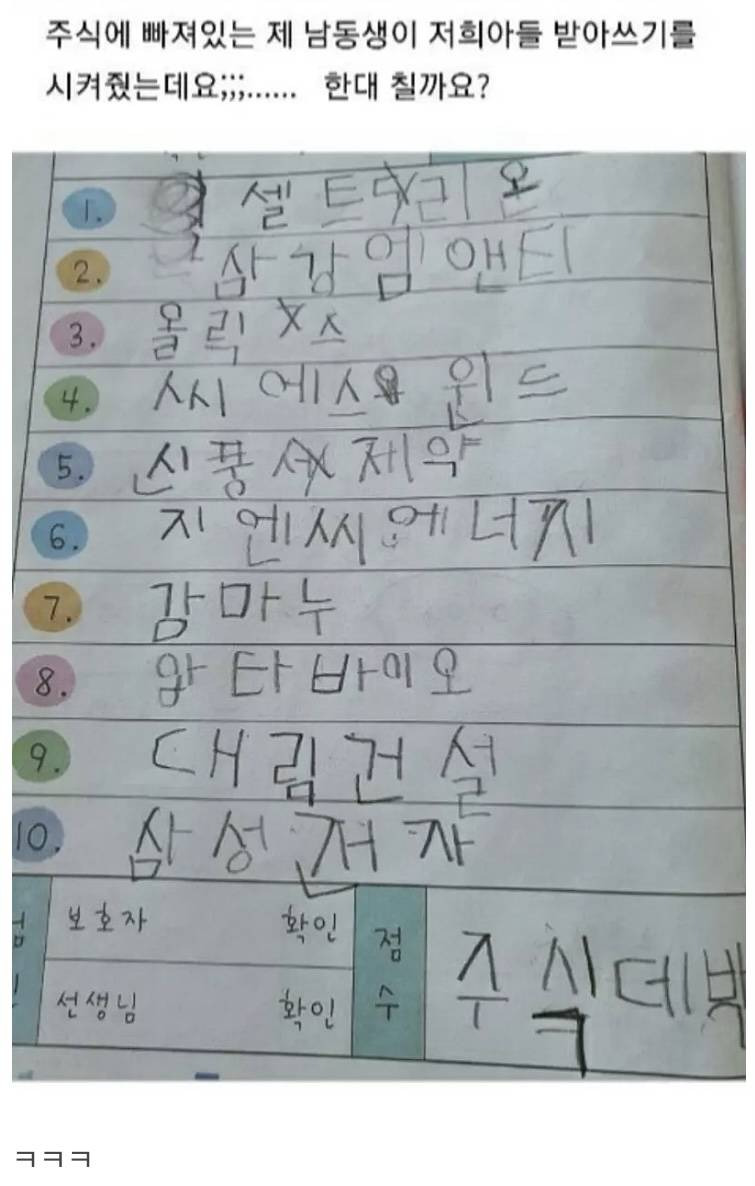 주식에 빠져있는 제 남동생이 저희아들 받아쓰기를
시켜줬는데요;;;...... 한대 칠까요?
1. 셀트리온
2. 삼강엠앤티
3. 올릭스
4. 씨에스윈드
5. 신풍제약
6. 지엔씨에너지
7. 감마누
8. 압타바이오
9. 대림건설
10. 삼성전자
보호자 확인
선생님 확인
점수
주식데박
ㅋㅋㅋ